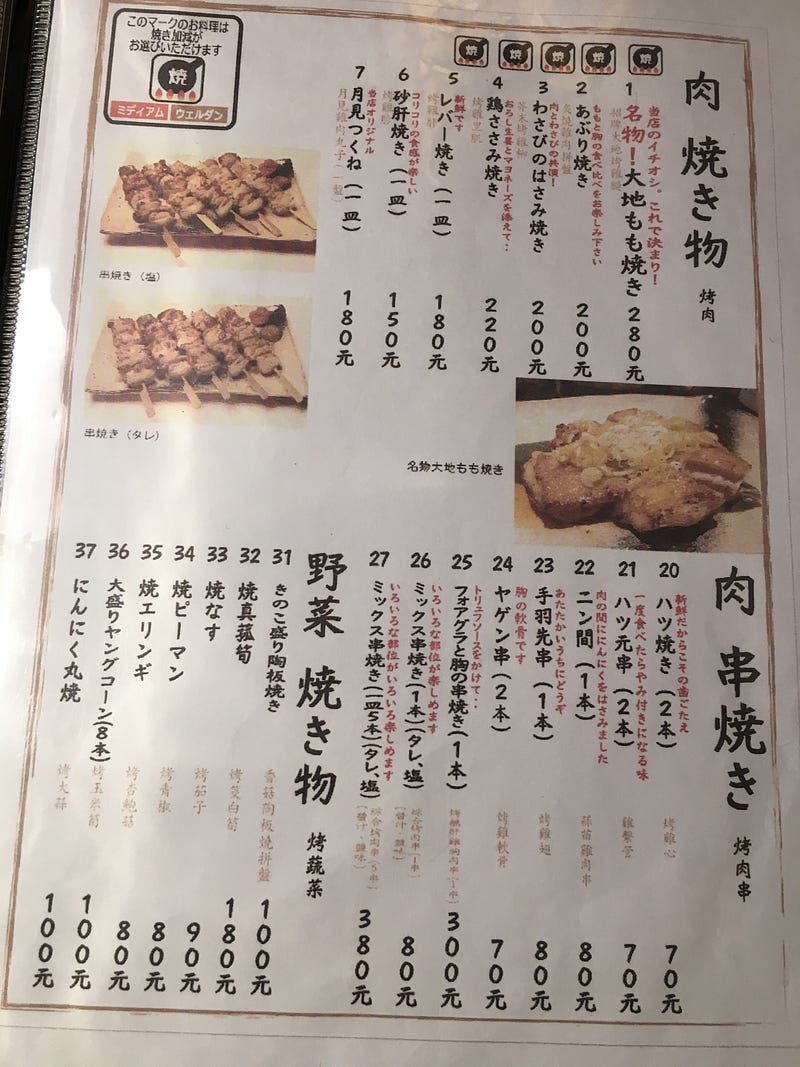 このマークのお料理は
焼き加減が
お選びいただけます
焼
ミディアム ウェルダン
肉 焼き物 烤肉
焼
焼
焼
焼
焼
当店のイチオシ。これで決まり!
1 名物!大地もも焼き 280元
招牌大地烤雞腿
ももと胸の食べ比べをお楽しみ下さい
2 あぶり焼き 200元
炙燒雞肉拼盤
肉とわさびの共演!
3 わさびのはさみ焼き 200元
芥末烤雞柳
おろし生姜とマヨネーズを添えて‥
4 鶏ささみ焼き 220元
烤雞里肌
新鮮です
5 レバー焼き(一皿) 180元
烤雞肝
コリコリの食感が楽しい
6 砂肝焼き(一皿) 150元
烤雞胗
当店オリジナル
7 月見つくね(一皿) 180元
月見雞肉丸子(一盤)
串焼き(塩)
串焼き(タレ)
名物大地もも焼き
肉 串焼き 烤肉串
新鮮だからこその歯ごたえ
20 ハツ焼き(2本) 烤雞心 70元
一度食べたらやみ付きになる味
21 ハツ元串(2本) 雞繫管 70元
肉の間ににんにくをはさみました
22 ニン間(1本) 蒜苗雞肉串 80元
あたたかいうちにどうぞ
23 手羽先串(1本) 烤雞翅 80元
胸の軟骨です
24 ヤゲン串(2本) 烤雞軟骨 70元
トリュフソースをかけて‥
25 フォアグラと胸の串焼き(1本) 烤鵝肝雞胸肉串(1串) 300元
いろいろな部位が楽しめます
26 ミックス串焼き(1本)(タレ、塩) 綜合烤肉串(1串)(醬汁、鹽味) 80元
いろいろな部位がいろいろ楽しめます
27 ミックス串焼き(一皿5本)(タレ、塩) 綜合烤肉串(5串)(醬汁、鹽味) 380元
野菜 焼き物 烤蔬菜
31 きのこ盛り陶板焼き 香菇陶板燒拼盤 100元
32 焼真菰筍 烤筊白筍 180元
33 焼なす 烤茄子 90元
34 焼ピーマン 烤青椒 80元
35 焼エリンギ 烤杏鮑菇 80元
36 大盛りヤングコーン(8本) 烤玉米筍 100元
37 にんにく丸焼 烤大蒜 100元